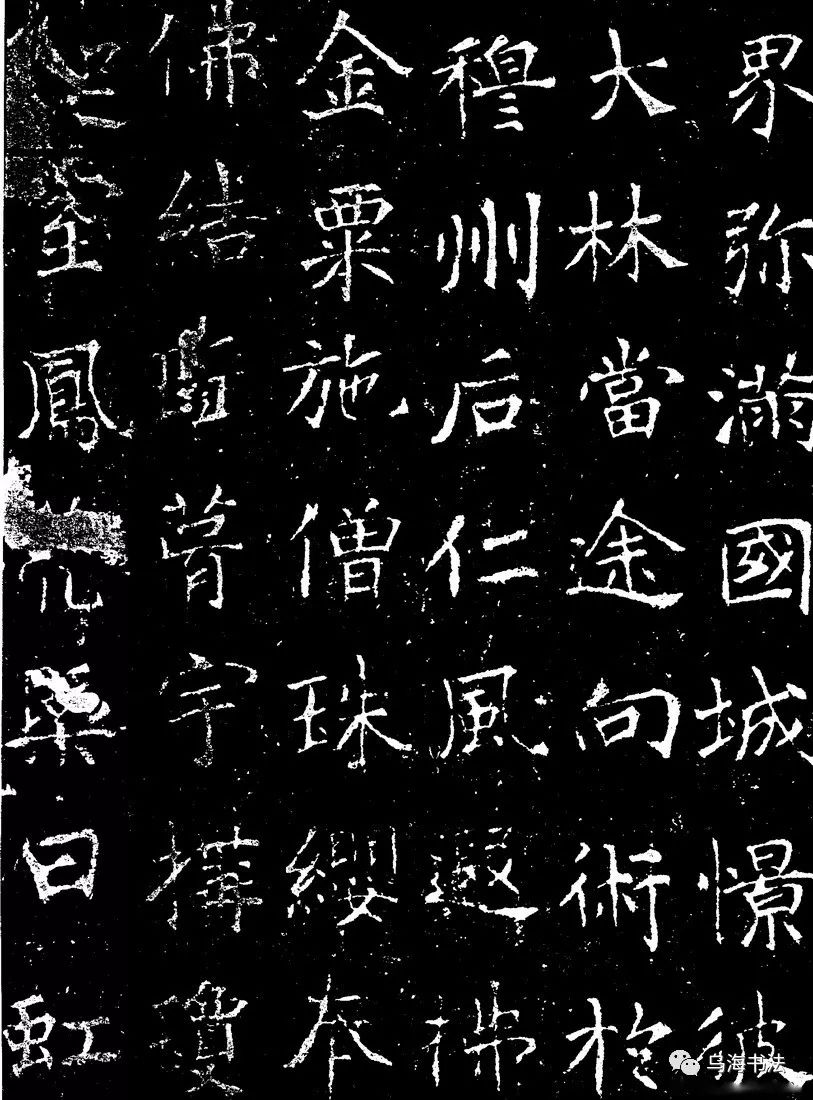 界弥滿國城憬彼
大林當途向術於
穆州后仁風遐拂
金粟施僧珠纓奉
佛結宇搆瓊
鳳曰虹
乌海书法